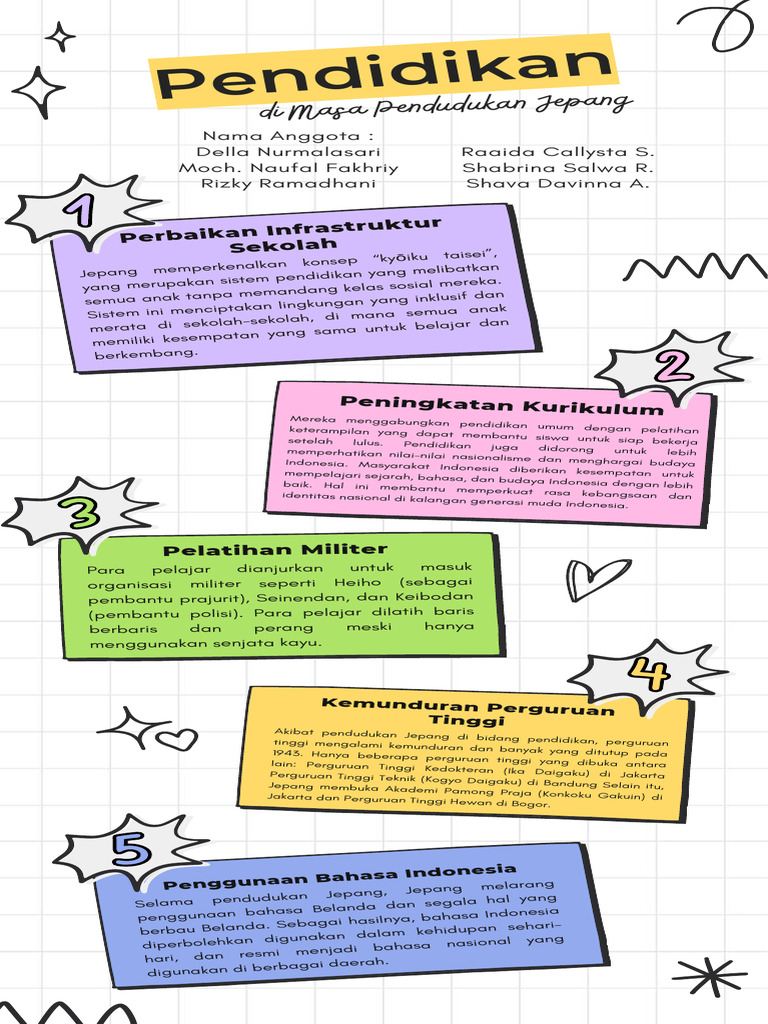 Pendidikan
di Masa Pendudukan Jepang
Nama Anggota :
Della Nurmalasari
Moch. Naufal Fakhriy
Rizky Ramadhani
Raaida Callysta S.
Shabrina Salwa R.
Shava Davinna A.
1
Perbaikan Infrastruktur
Sekolah
Jepang memperkenalkan konsep “kyōiku taisei”,
yang merupakan sistem pendidikan yang melibatkan
semua anak tanpa memandang kelas sosial mereka.
Sistem ini menciptakan lingkungan yang inklusif dan
merata di sekolah-sekolah, di mana semua anak
memiliki kesempatan yang sama untuk belajar dan
berkembang.
2
Peningkatan Kurikulum
Mereka menggabungkan pendidikan umum dengan pelatihan
keterampilan yang dapat membantu siswa untuk siap bekerja
setelah lulus. Pendidikan juga didorong untuk lebih
memperhatikan nilai-nilai nasionalisme dan menghargai budaya
Indonesia. Masyarakat Indonesia diberikan kesempatan untuk
mempelajari sejarah, bahasa, dan budaya Indonesia dengan lebih
baik. Hal ini membantu memperkuat rasa kebangsaan dan
identitas nasional di kalangan generasi muda Indonesia.
3
Pelatihan Militer
Para pelajar dianjurkan untuk masuk
organisasi militer seperti Heiho (sebagai
pembantu prajurit), Seinendan, dan Keibodan
(pembantu polisi). Para pelajar dilatih baris
berbaris dan perang meski hanya
menggunakan senjata kayu.
4
Kemunduran Perguruan
Tinggi
Akibat pendudukan Jepang di bidang pendidikan, perguruan
tinggi mengalami kemunduran dan banyak yang ditutup pada
1943. Hanya beberapa perguruan tinggi yang dibuka antara
lain: Perguruan Tinggi Kedokteran (Ika Daigaku) di Jakarta
Perguruan Tinggi Teknik (Kogyo Daigaku) di Bandung Selain itu,
Jepang membuka Akademi Pamong Praja (Konkoku Gakuin) di
Jakarta dan Perguruan Tinggi Hewan di Bogor.
5
Penggunaan Bahasa Indonesia
Selama pendudukan Jepang, Jepang melarang
penggunaan bahasa Belanda dan segala hal yang
berbau Belanda. Sebagai hasilnya, bahasa Indonesia
diperbolehkan digunakan dalam kehidupan sehari-
hari, dan resmi menjadi bahasa nasional yang
digunakan di berbagai daerah.